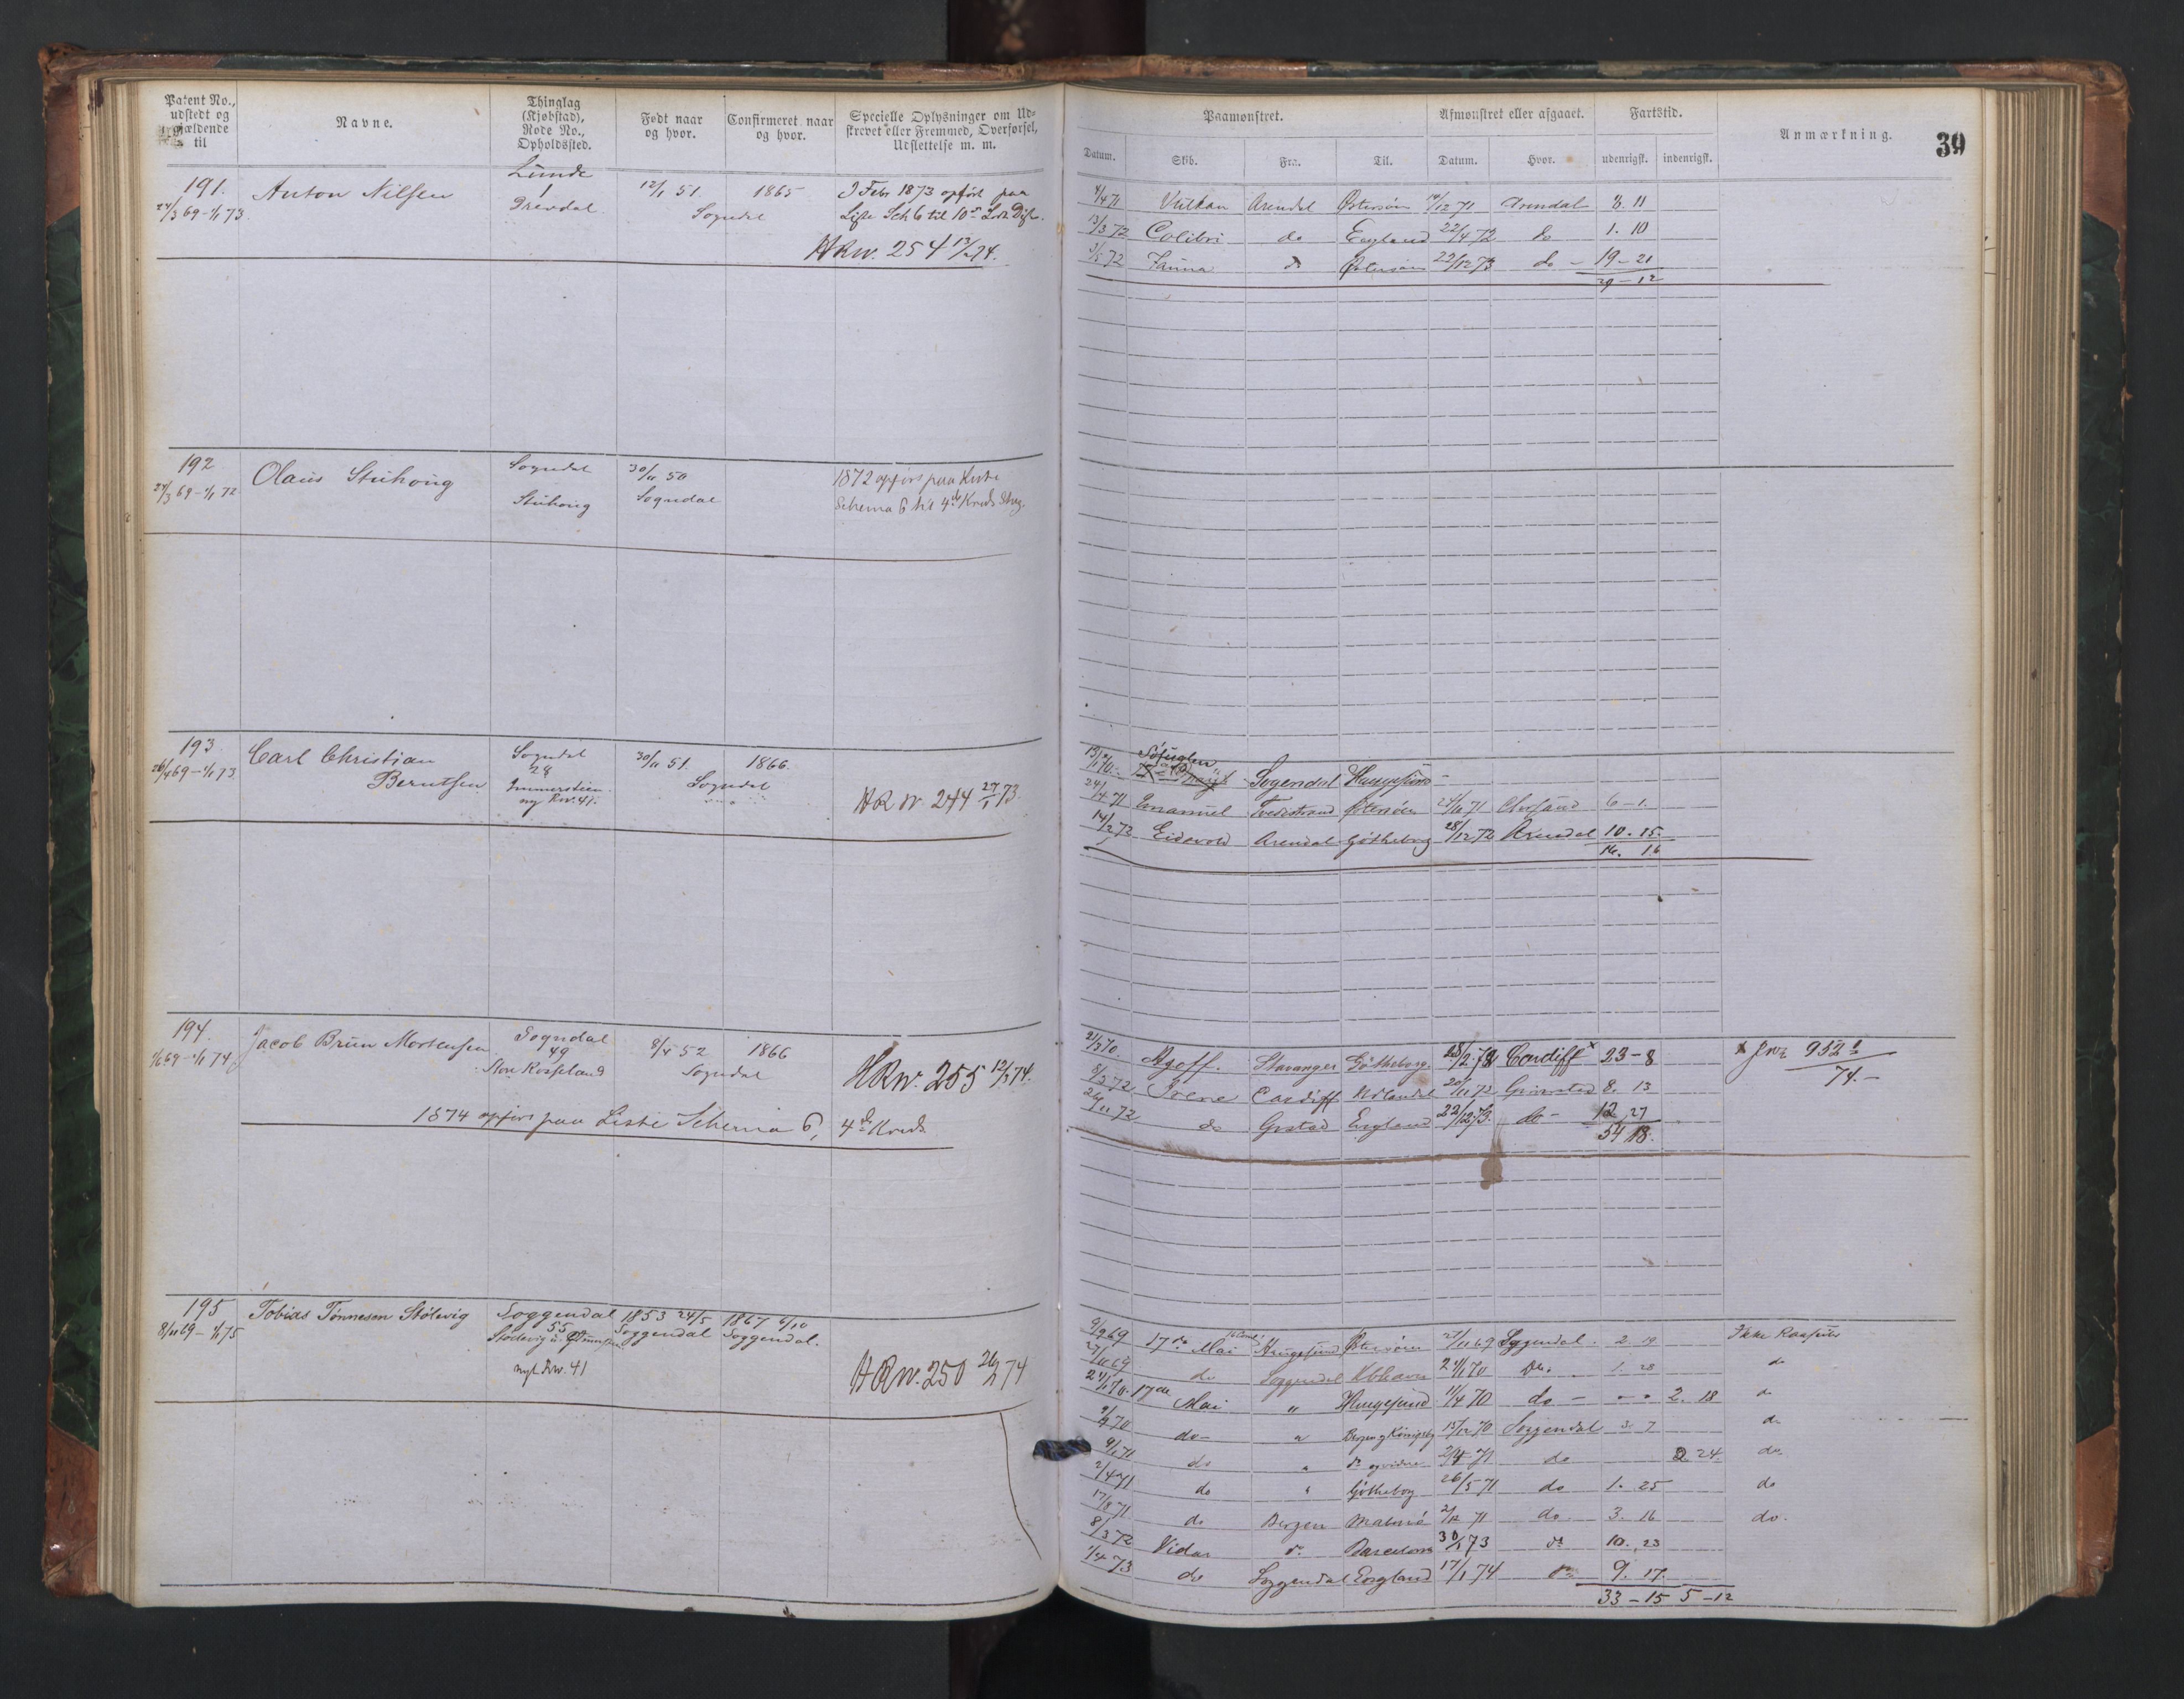 Patent No.,
udstedt og
gjældende
til
Navne.
Thinglag
(Kjøbstad),
Rode No.,
Opholdssted.
Født naar
og hvor.
Confirmeret naar
og hvor.
Specielle Oplysninger om Ud-
skrevet eller Fremmed, Overførsel,
Udslettelse m. m.
191.
24/3 69 - 1/1 73.
Anton Nilsen
Lunde
1
Drevdal
12/1 51.
1865
Sogndal
I Febr 1873 opført paa
Liste Sch 6 til
HRW. 254 13/2 74.
192
24/3 69 - 1/1 72
Olaus Stuhoug
Sogndal
Stuhoug
30/11 50
Sogndal
1872 opført paa Liste
Schema 6 til 4de Kreds
193
26/4 69 - 1/1 73
Carl Christian
Berntsen
Sogndal
28
Immerstien
ny Rw. 41.
30/11 51.
1866.
Sogndal
HRW 244 27/1 73
194.
1/1 74
Jacob Brun Mortensen
Sogndal
49
Store Rosseland
8/5 52
1866
Sogndal
HRW. 255 12/3 74.
1874 opført paa Liste Schema 6, 4de Kreds
195
8/11 69 - 1/1 75
Tobias Tønnesen Stølevig
Soggendal
55
nyt Rw. 41
1853 24/5
Soggendal
1867 6/10
Soggendal.
HRW. 250 26/2 74
39
Paamønstret.
Afmønstret eller afgaaet.
Fartstid.
Anmærkning.
Datum.
Skib.
Fra.
Til.
Datum.
Hvor.
udenrigsk.
indenrigsk.
4/4 71 Vulkan Arendal Østersøn 14/12 71 Arendal 8. 11
13/3 72 Colibri do England 22/4 72 do 1. 10
3/5 72 Fauna do Østersøn 22/12 73 do - 19 - 21
29 - 12
Søfuglen
Sogendal Haugesund -
24/4 71 Emanuel Tvedestrand Østersøen 24/10 71 6 - 1.
14/2 72 Eidsvold Arendal Gøtheborg 28/12 72 Arendal 10. 15.
16. 16
21/3 70. Stavanger Gøtheborg. 28/2 72 Cardiff x 23 - 8
x 952
74. -
8/3 72 Cardiff 20/11 72 Grimstad 8. 13
26/11 72 do Grstad England 22/12 73. do - 12 27
54 18.
9/9 69 17de Mai Haugesund Østersøen 27/11 69 Soggendal. 2. 19
27/11 69 do Soggendal Kbhavn 24/1 70 Do. 1. 28 do
24/1 70. 17de Mai " Haugesund 11/4 70 do - 2. 18 do
9/9 70 do - " 15/12 70 Soggendal 3. 7 do
9/1 71 do " do 71 do 2 24 do
2/4 71 do " Gøtheborg 26/5 71 do 1. 25 do
17/8 71 do Bergen Malmø 2/12 71 do 3. 16 do.
8/3 72 Vidar do Barcelona 30/1 73 do 10. 23
1/4 73 do Soggendal England 17/1 74 do 9. 17.
33 - 15 5 - 12